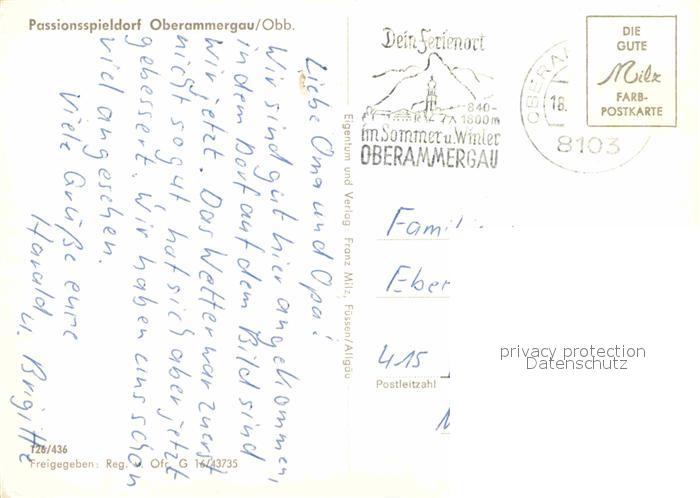 Passionsspieldorf Oberammergau/Obb.
Liebe Oma und Opa!
Wir sind gut hier angekommen,
in dem Dorf auf dem Bild sind
wir jetzt. Das Wetter war zuerst
nicht so gut hat sich aber jetzt
gebessert. Wir haben uns schon
viel angesehen.
Viele Grüße eure
Harald u. Brigitte
126/436
Freigegeben: Reg. v. Ofr. G 16/43735
Eigentum und Verlag: Franz Milz, Füssen/Allgäu
Dein Ferienort
840-
1800m
im Sommer u. Winter
OBERAMMERGAU
18.
8103
DIE
GUTE
Milz
FARB-
POSTKARTE
415
Postleitzahl
privacy protection
Datenschutz